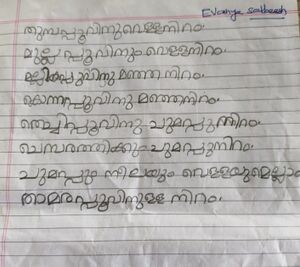 Evanya satheesh
തുമ്പപ്പൂവിനു വെള്ളനിറം.
മുല്ലപ്പൂവിനും വെള്ളനിറം.
പൂവിനു മഞ്ഞ നിറം.
കൊന്നപ്പൂവിനു മഞ്ഞനിറം.
തെച്ചിപ്പൂവിനു ചുമപ്പുനിറം.
ചെമ്പരത്തിക്കും ചുമപ്പുനിറം.
ചുമപ്പും നീലയും വെള്ളയുമെല്ലാം
താമരപ്പൂവിനുള്ള നിറം.